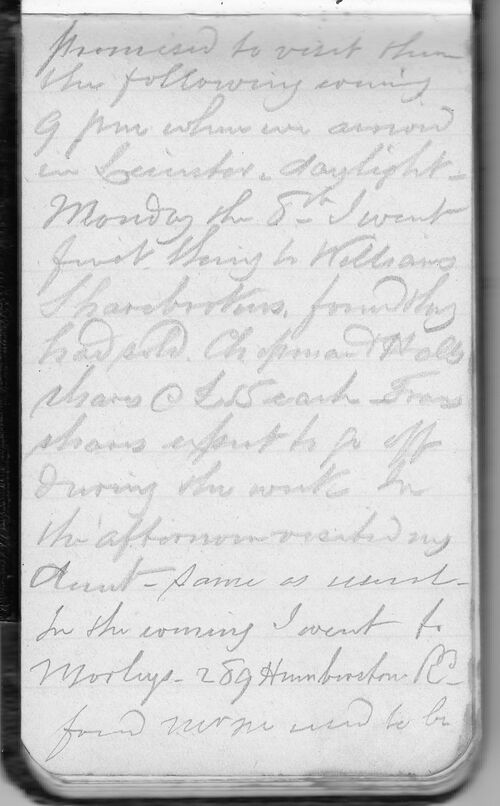 promised to visit them
the following evening
9 pm when we arrived
in Leicester. daylight -
Monday the 8th I went
first thing to Willsons
Sharebrokers, found they
had sold Chapman & Halls
shares @ £ 5 each Tram
shares expect to go off
during the week In
the afternoon visited my
Aunt - same as usual -
In the evening I went to
Morleys - 289 Humberstone Rd -
found used to be